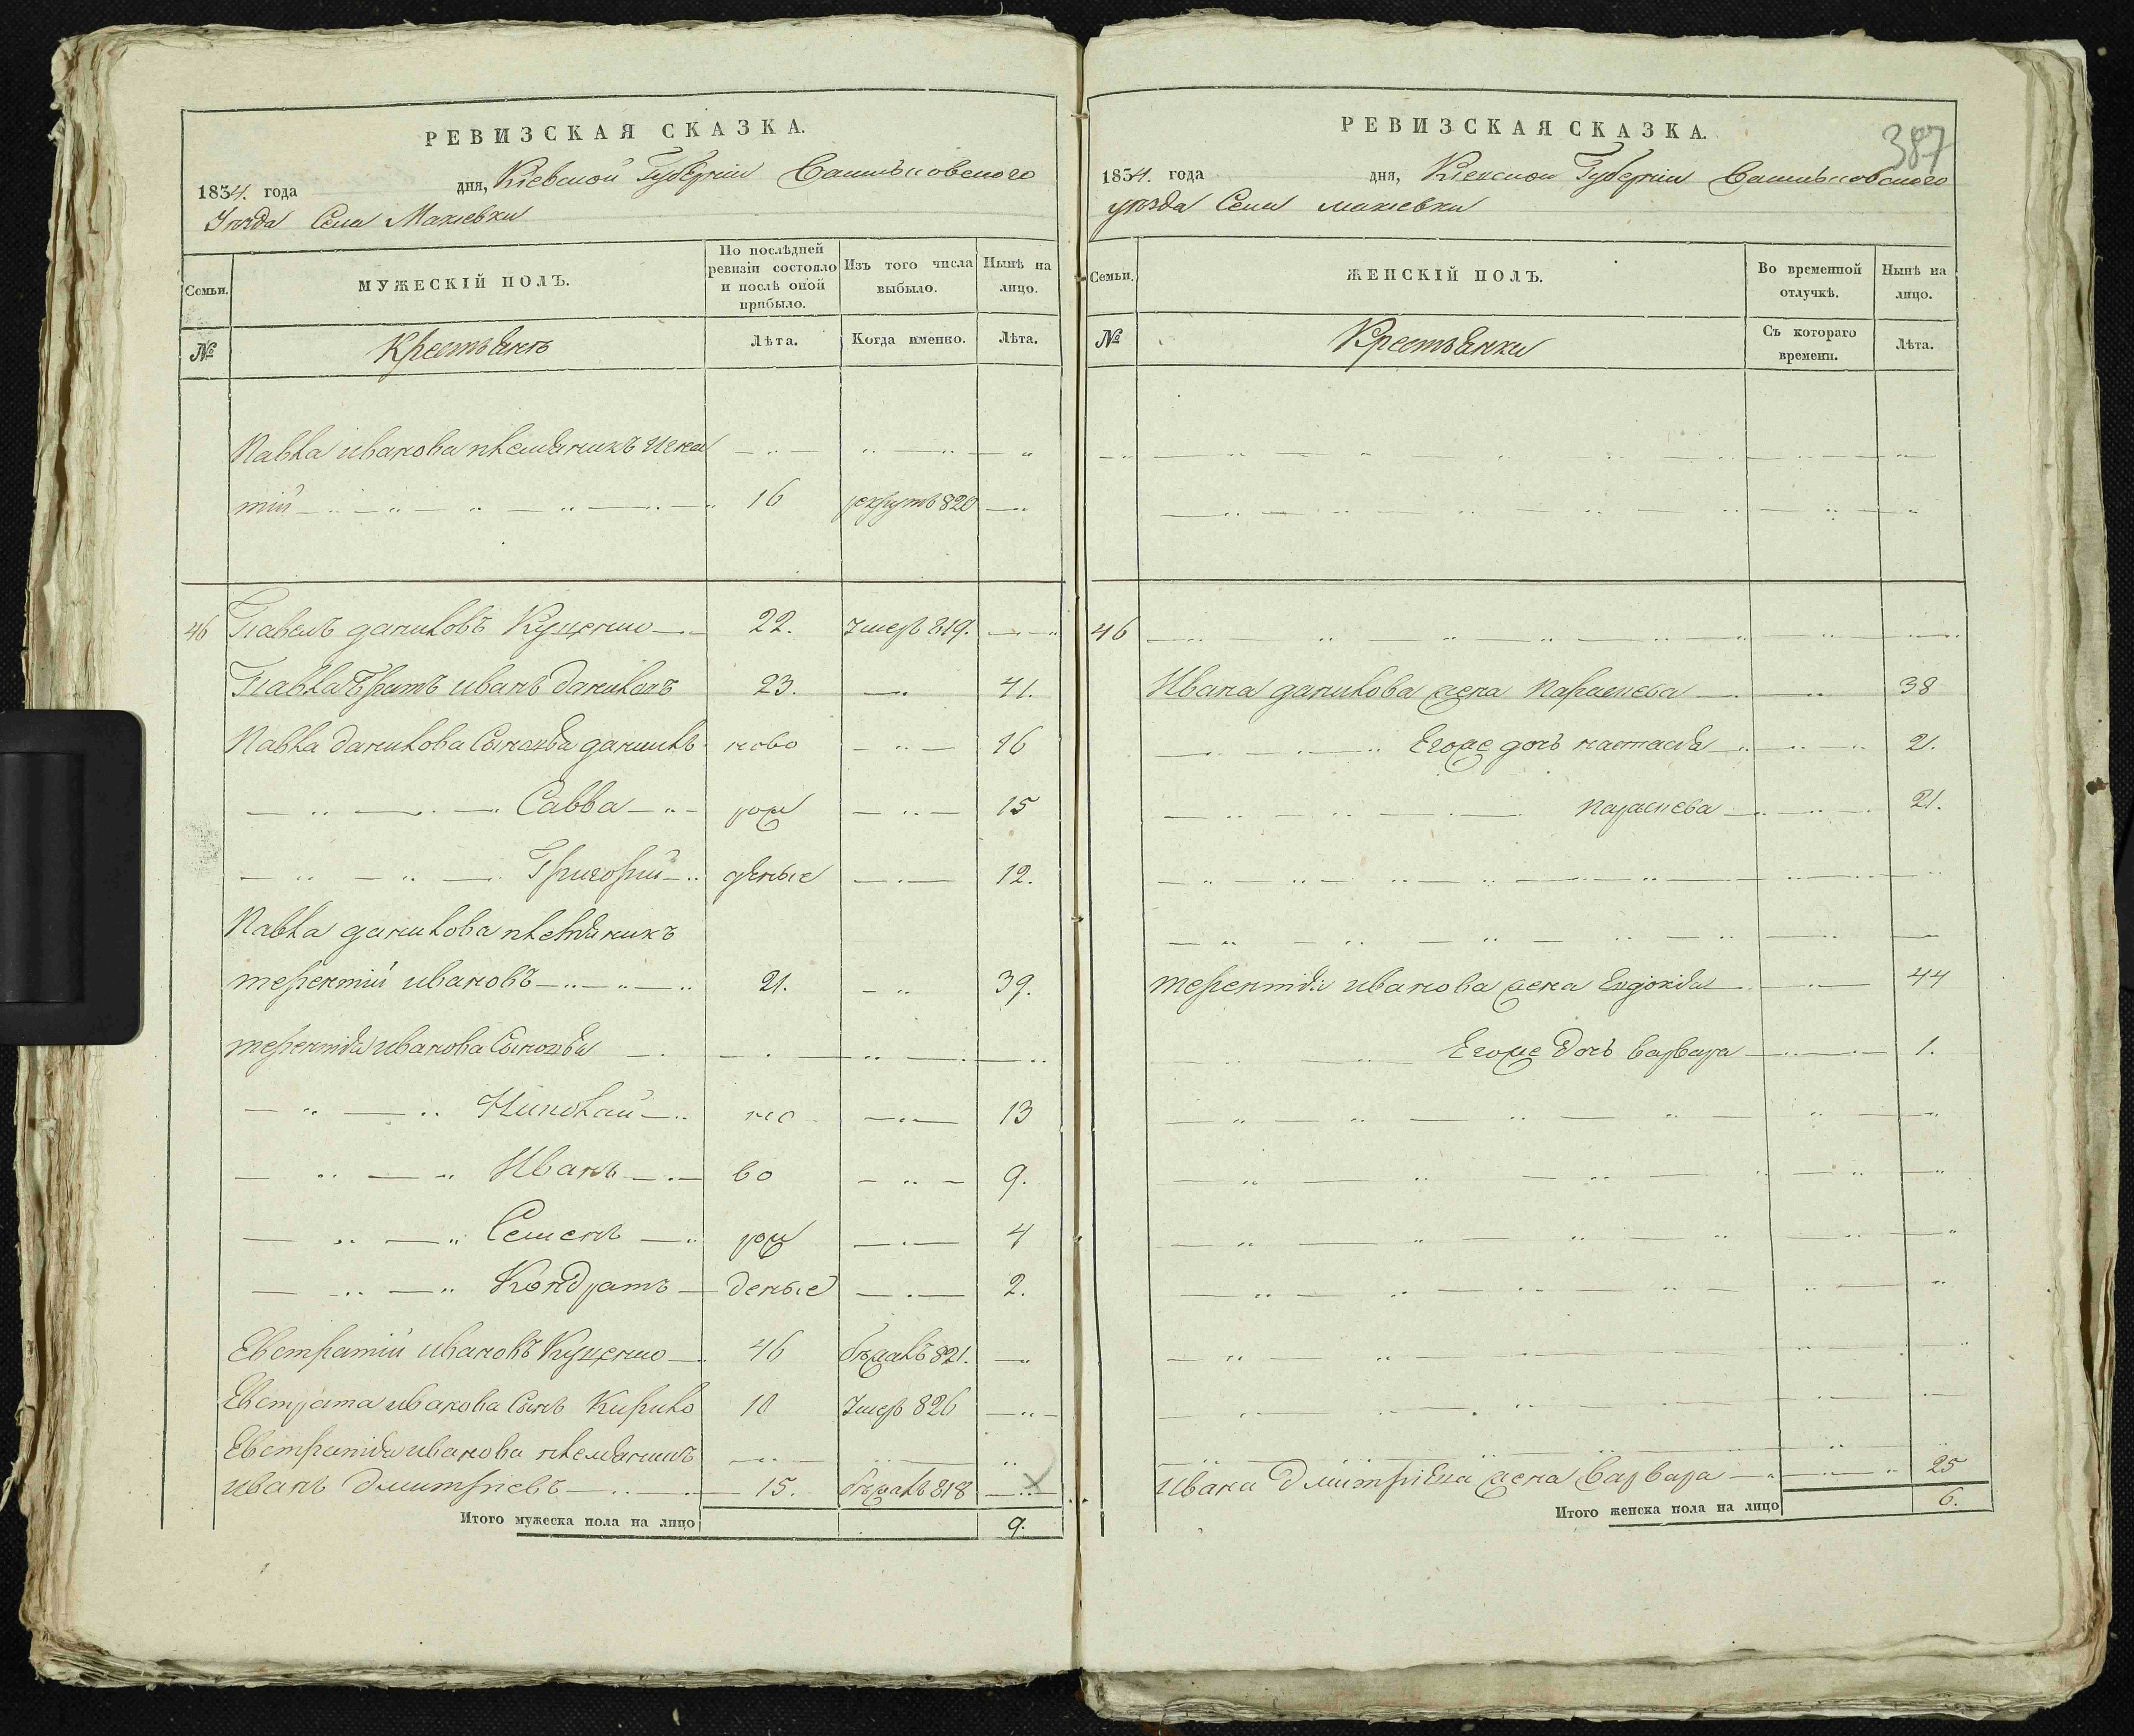 РЕВИЗСКАЯ СКАЗКА.
1834. года дня, Кіевской Губерніи Васильковского
Уѣзда Села Макіевки
Семьи.
МУЖЕСКІЙ ПОЛЪ.
По послѣдней ревизіи состояло и послѣ оной прибыло.
Изъ того числа выбыло.
Нынѣ на лицо.
№
Крестьянъ
Лѣта.
Когда именно.
Лѣта.
Павла иванова племянникъ
тій 16 рекрутъ 820
46 Павелъ даниловъ Куценко 22. Умеръ 819.
Павла братъ иванъ даниловъ 23. 41.
Павла данилова Сыновья данилъ ново 16
Савва рож 15
Григорій деные 12.
Павла данилова племяникъ
терентий ивановъ 21. 39.
терентія иванова Сыновья
Николай но 13
Иванъ во 9.
Семенъ рож 4
Кондратъ деные 2.
Евстратій ивановъ Куценко 46 бежалъ 821.
Евстрата иванова Сынъ Кирило 10 Умеръ 826
Евстратія иванова племяникъ
иванъ дмитріевъ 15. бежалъ 818
Итого мужеска пола на лицо 9.
РЕВИЗСКАЯ СКАЗКА.
387
1834. года дня, Кіевской Губерніи Васильковского
уѣзда Села макіевки
Семьи.
ЖЕНСКІЙ ПОЛЪ.
Во временной отлучкѣ.
Нынѣ на лицо.
№
Крестьянки
Съ котораго времени.
Лѣта.
46
Ивана данилова жена Параскева 38
Егоже дочь настасья 2.
параскева 21.
терентія иванова жена Евдокія 44
Егоже дочь варвара 1.
ивана дмитріева жена варвара 25
Итого женска пола на лицо 6.